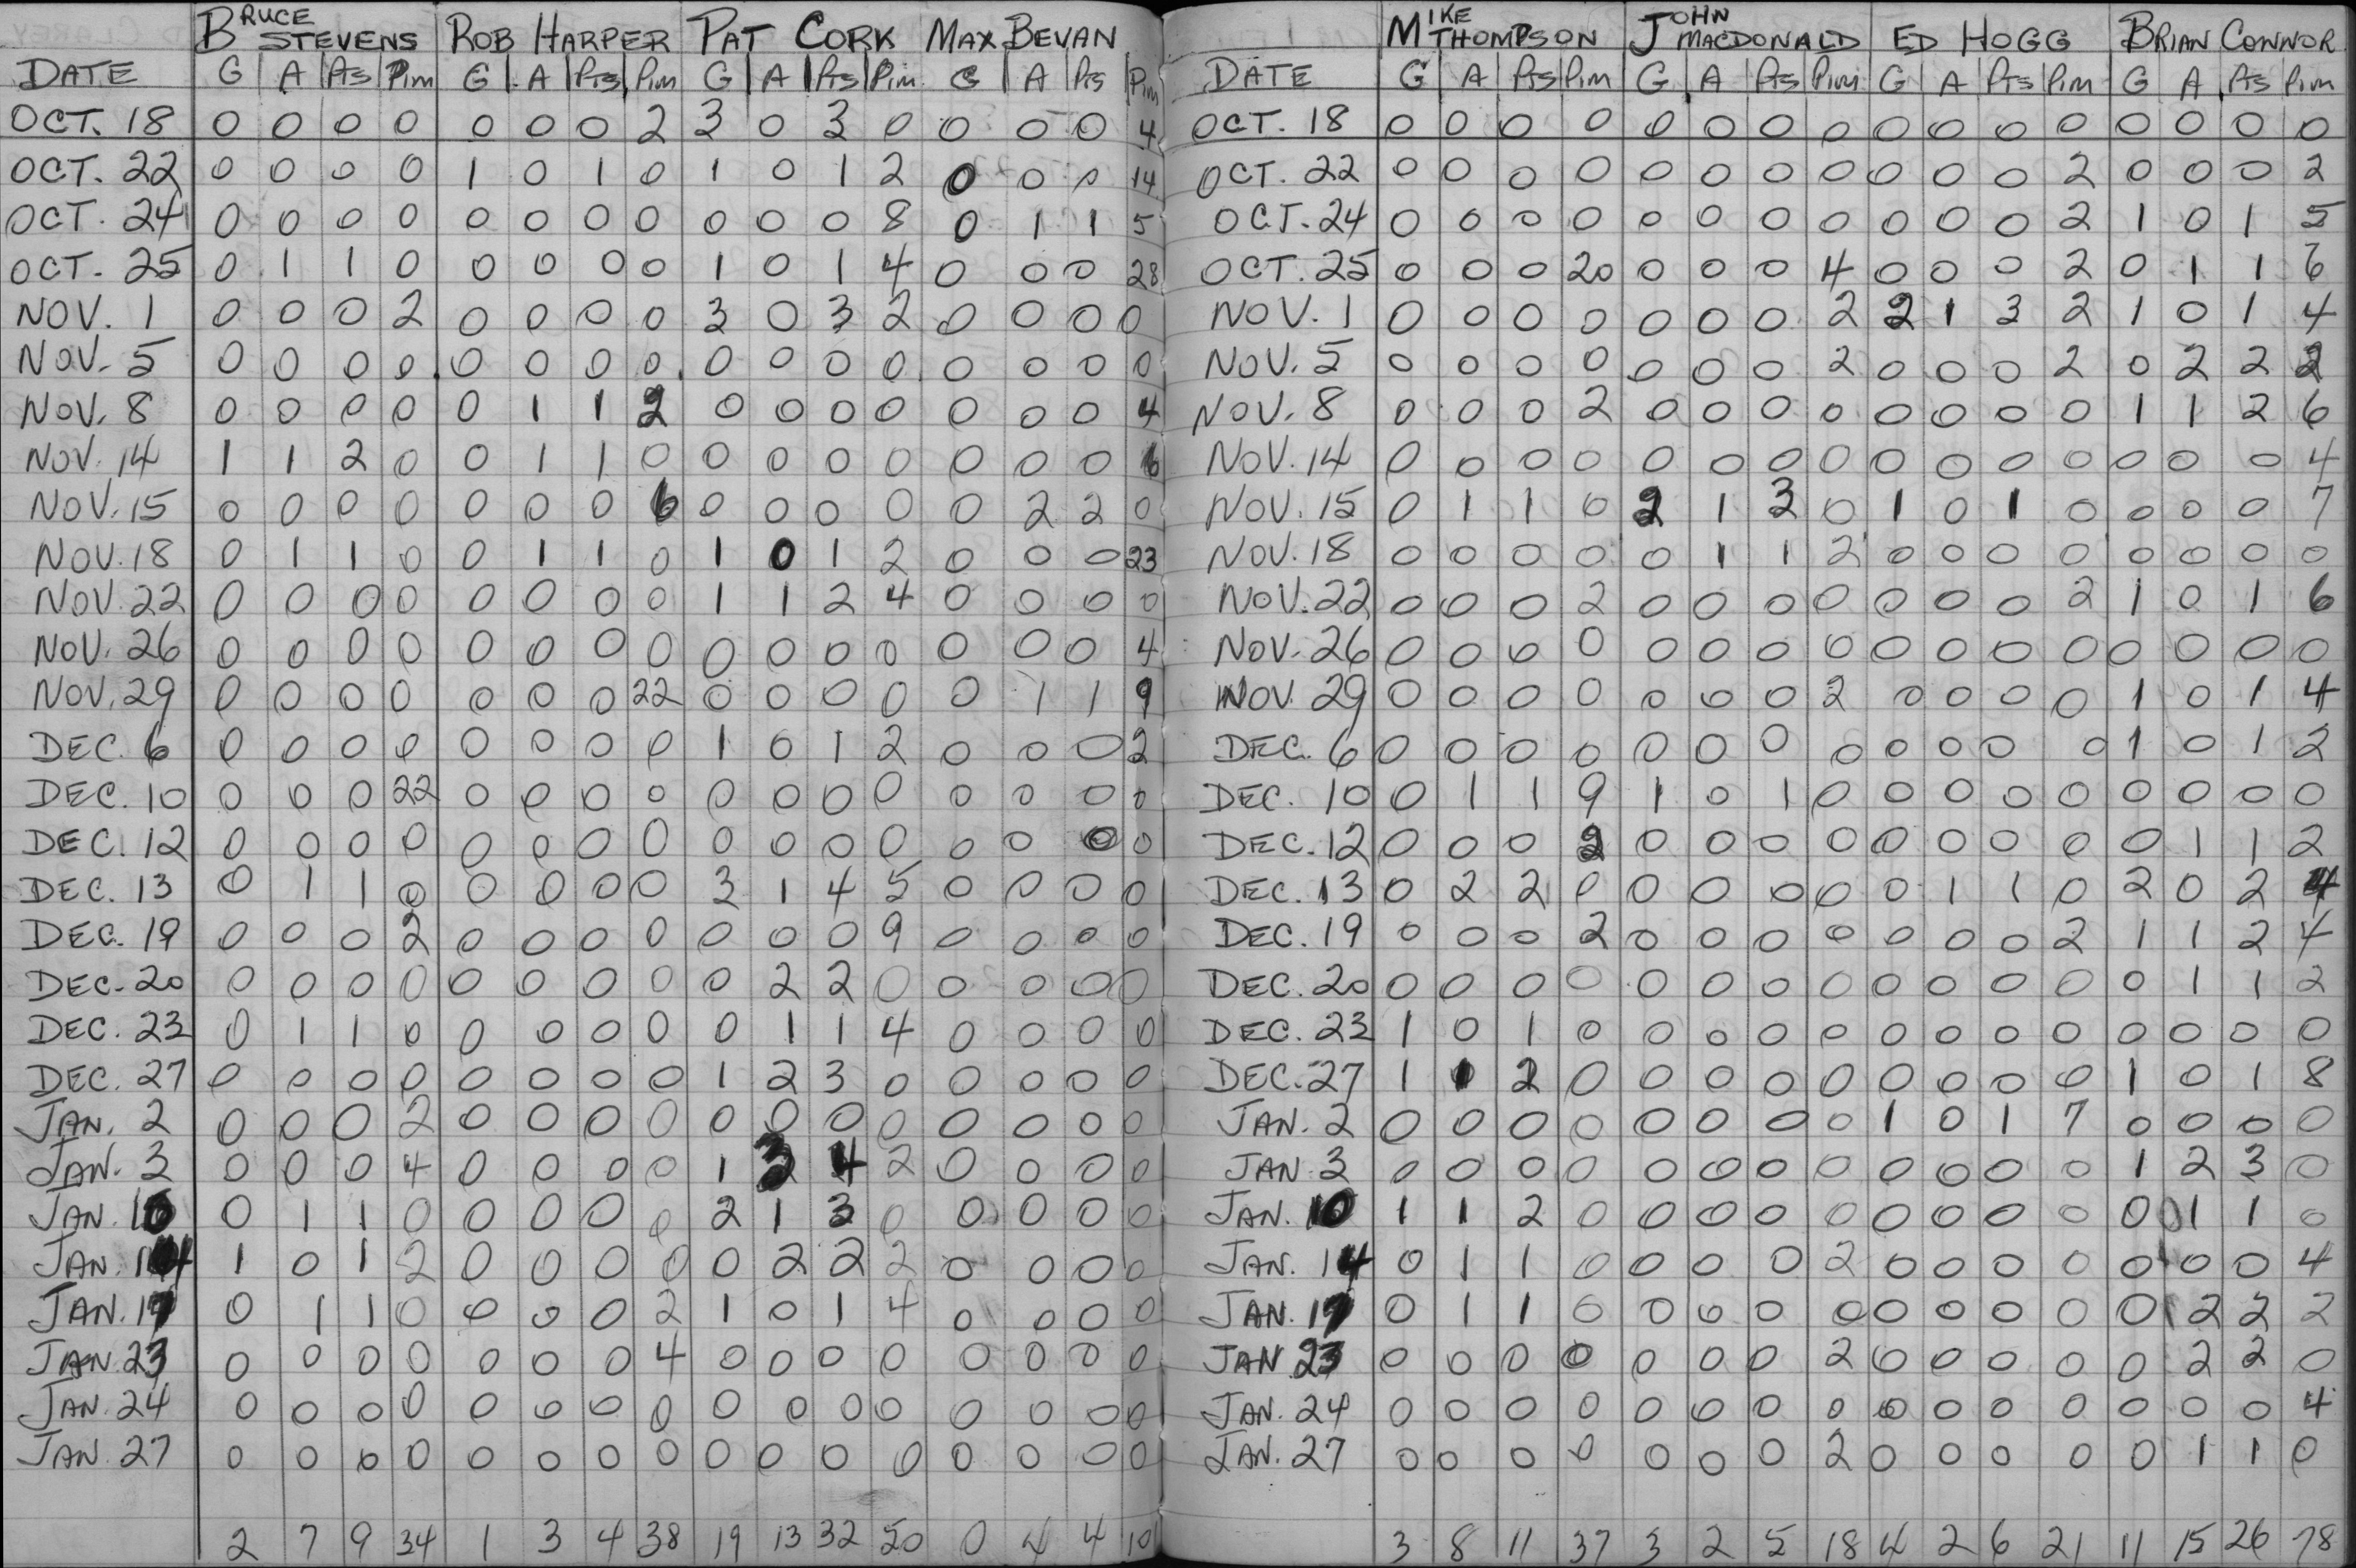 BRUCE STEVENS ROB HARPER PAT CORK MAX BEVAN
DATE G A Pts Pim G A Pts Pim G A Pts Pim G A Pts Pim
OCT. 18 0 0 0 0 0 0 0 2 3 0 3 0 0 0 0 4
OCT. 22 0 0 0 0 1 0 1 0 1 0 1 2 0 0 0 14
OCT. 24 0 0 0 0 0 0 0 0 0 0 0 8 0 1 1 5
OCT. 25 0 1 1 0 0 0 0 0 1 0 1 4 0 0 0 28
NOV. 1 0 0 0 2 0 0 0 0 3 0 3 2 0 0 0 0
NOV. 5 0 0 0 0 0 0 0 0 0 0 0 0 0 0 0 0
NOV. 8 0 0 0 0 0 1 1 2 0 0 0 0 0 0 0 4
NOV. 14 1 1 2 0 0 1 1 0 0 0 0 0 0 0 0 6
NOV. 15 0 0 0 0 0 0 0 6 0 0 0 0 0 2 2 0
NOV. 18 0 1 1 0 0 1 1 0 1 0 1 2 0 0 0 23
NOV. 22 0 0 0 0 0 0 0 0 1 1 2 4 0 0 0 0
NOV. 26 0 0 0 0 0 0 0 0 0 0 0 0 0 0 0 4
NOV. 29 0 0 0 0 0 0 0 22 0 0 0 0 0 1 1 9
DEC. 6 0 0 0 0 0 0 0 0 1 0 1 2 0 0 0 2
DEC. 10 0 0 0 22 0 0 0 0 0 0 0 0 0 0 0 0
DEC. 12 0 0 0 0 0 0 0 0 0 0 0 0 0 0 0 0
DEC. 13 0 1 1 0 0 0 0 0 3 1 4 5 0 0 0 0
DEC. 19 0 0 0 2 0 0 0 0 0 0 0 9 0 0 0 0
DEC. 20 0 0 0 0 0 0 0 0 0 2 2 0 0 0 0 0
DEC. 23 0 1 1 0 0 0 0 0 0 1 1 4 0 0 0 0
DEC. 27 0 0 0 0 0 0 0 0 1 2 3 0 0 0 0 0
JAN. 2 0 0 0 2 0 0 0 0 0 0 0 0 0 0 0 0
JAN. 3 0 0 0 4 0 0 0 0 1 3 4 2 0 0 0 0
JAN. 10 0 1 1 0 0 0 0 0 2 1 3 0 0 0 0 0
JAN. 14 1 0 1 2 0 0 0 0 0 2 2 2 0 0 0 0
JAN. 17 0 1 1 0 0 0 0 2 1 0 1 4 0 0 0 0
JAN. 23 0 0 0 0 0 0 0 4 0 0 0 0 0 0 0 0
JAN. 24 0 0 0 0 0 0 0 0 0 0 0 0 0 0 0 0
JAN. 27 0 0 0 0 0 0 0 0 0 0 0 0 0 0 0 0
2 7 9 34 1 3 4 38 19 13 32 50 0 4 4
MIKE THOMPSON JOHN MACDONALD ED HOGG BRIAN CONNOR
DATE G A Pts Pim G A Pts Pim G A Pts Pim G A Pts Pim
OCT. 18 0 0 0 0 0 0 0 0 0 0 0 0 0 0 0 0
OCT. 22 0 0 0 0 0 0 0 0 0 0 0 2 0 0 0 2
OCT. 24 0 0 0 0 0 0 0 0 0 0 0 2 1 0 1 5
OCT. 25 0 0 0 20 0 0 0 4 0 0 0 2 0 1 1 6
NOV. 1 0 0 0 0 0 0 0 2 2 1 3 2 1 0 1 4
NOV. 5 0 0 0 0 0 0 0 2 0 0 0 2 0 2 2 2
NOV. 8 0 0 0 2 0 0 0 0 0 0 0 0 1 1 2 6
NOV. 14 0 0 0 0 0 0 0 0 0 0 0 0 0 0 0 4
NOV. 15 0 1 1 0 2 1 3 0 1 0 1 0 0 0 0 7
NOV. 18 0 0 0 0 0 1 1 2 0 0 0 0 0 0 0 0
NOV. 22 0 0 0 2 0 0 0 0 0 0 0 2 1 0 1 6
NOV. 26 0 0 0 0 0 0 0 0 0 0 0 0 0 0 0 0
NOV. 29 0 0 0 0 0 0 0 2 0 0 0 0 1 0 1 4
DEC. 6 0 0 0 0 0 0 0 0 0 0 0 0 1 0 1 2
DEC. 10 0 1 1 9 1 0 1 0 0 0 0 0 0 0 0 0
DEC. 12 0 0 0 2 0 0 0 0 0 0 0 0 0 1 1 2
DEC. 13 0 2 2 0 0 0 0 0 0 1 1 0 2 0 2 4
DEC. 19 0 0 0 2 0 0 0 0 0 0 0 2 1 1 2 4
DEC. 20 0 0 0 0 0 0 0 0 0 0 0 0 0 1 1 2
DEC. 23 1 0 1 0 0 0 0 0 0 0 0 0 0 0 0 0
DEC. 27 1 1 2 0 0 0 0 0 0 0 0 0 1 0 1 8
JAN. 2 0 0 0 0 0 0 0 0 1 0 1 7 0 0 0 0
JAN 3 0 0 0 0 0 0 0 0 0 0 0 0 1 2 3 0
JAN. 10 1 1 2 0 0 0 0 0 0 0 0 0 0 0 1 1 0
JAN. 14 0 1 1 0 0 0 0 2 0 0 0 0 0 0 0 4
JAN. 17 0 1 1 0 0 0 0 0 0 0 0 0 0 2 2 2
JAN 23 0 0 0 0 0 0 0 2 0 0 0 0 0 2 2 0
JAN. 24 0 0 0 0 0 0 0 0 0 0 0 0 0 0 0 4
JAN. 27 0 0 0 0 0 0 0 2 0 0 0 0 0 1 1 0
3 8 11 37 3 2 5 18 4 2 6 21 11 15 26 78